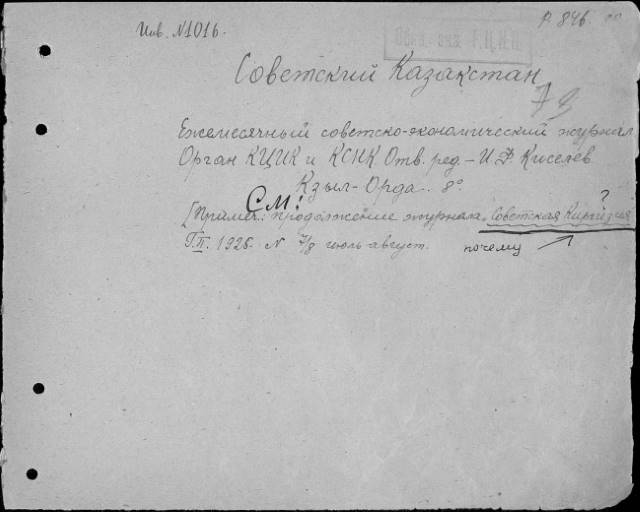 Инв. №1016.
Р 846.
Советский Казакстан
Ежемесячный советско-экономический журнал
Орган КЦИК и КСНК Отв. ред. – И Ф Киселев
Кзыл-Орда. 8°
См:
[Примеч.: продолжение журнала „Советская Киргизия
?
1926. N 7/8 июль август.
почему